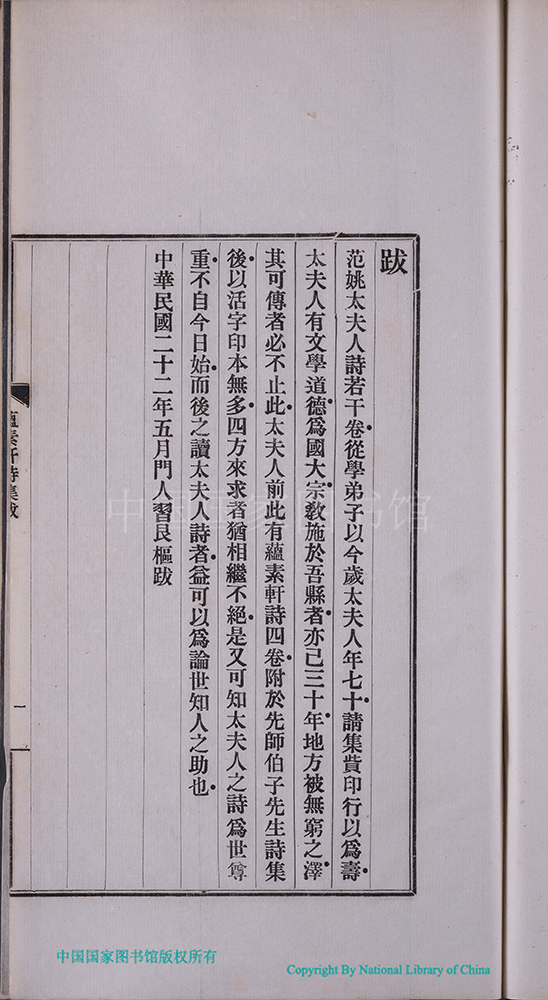 跋
范姚太夫人詩若干卷從學弟子以今歲太夫人年七十請集貲印行以爲壽
太夫人有文學道德爲國大宗敎施於吾縣者亦已三十年地方被無窮之澤
其可傳者必不止此太夫人前此有蘊素軒詩四卷附於先師伯子先生詩集
後以活字印本無多四方來求者猶相繼不絕是又可知太夫人之詩爲世尊
重不自今日始而後之讀太夫人詩者益可以爲論世知人之助也
中華民國二十二年五月門人習艮樞跋
蘊素軒詩集跋
一
中国国家图书馆
中国国家图书馆版权所有
Copyright By National Library of China